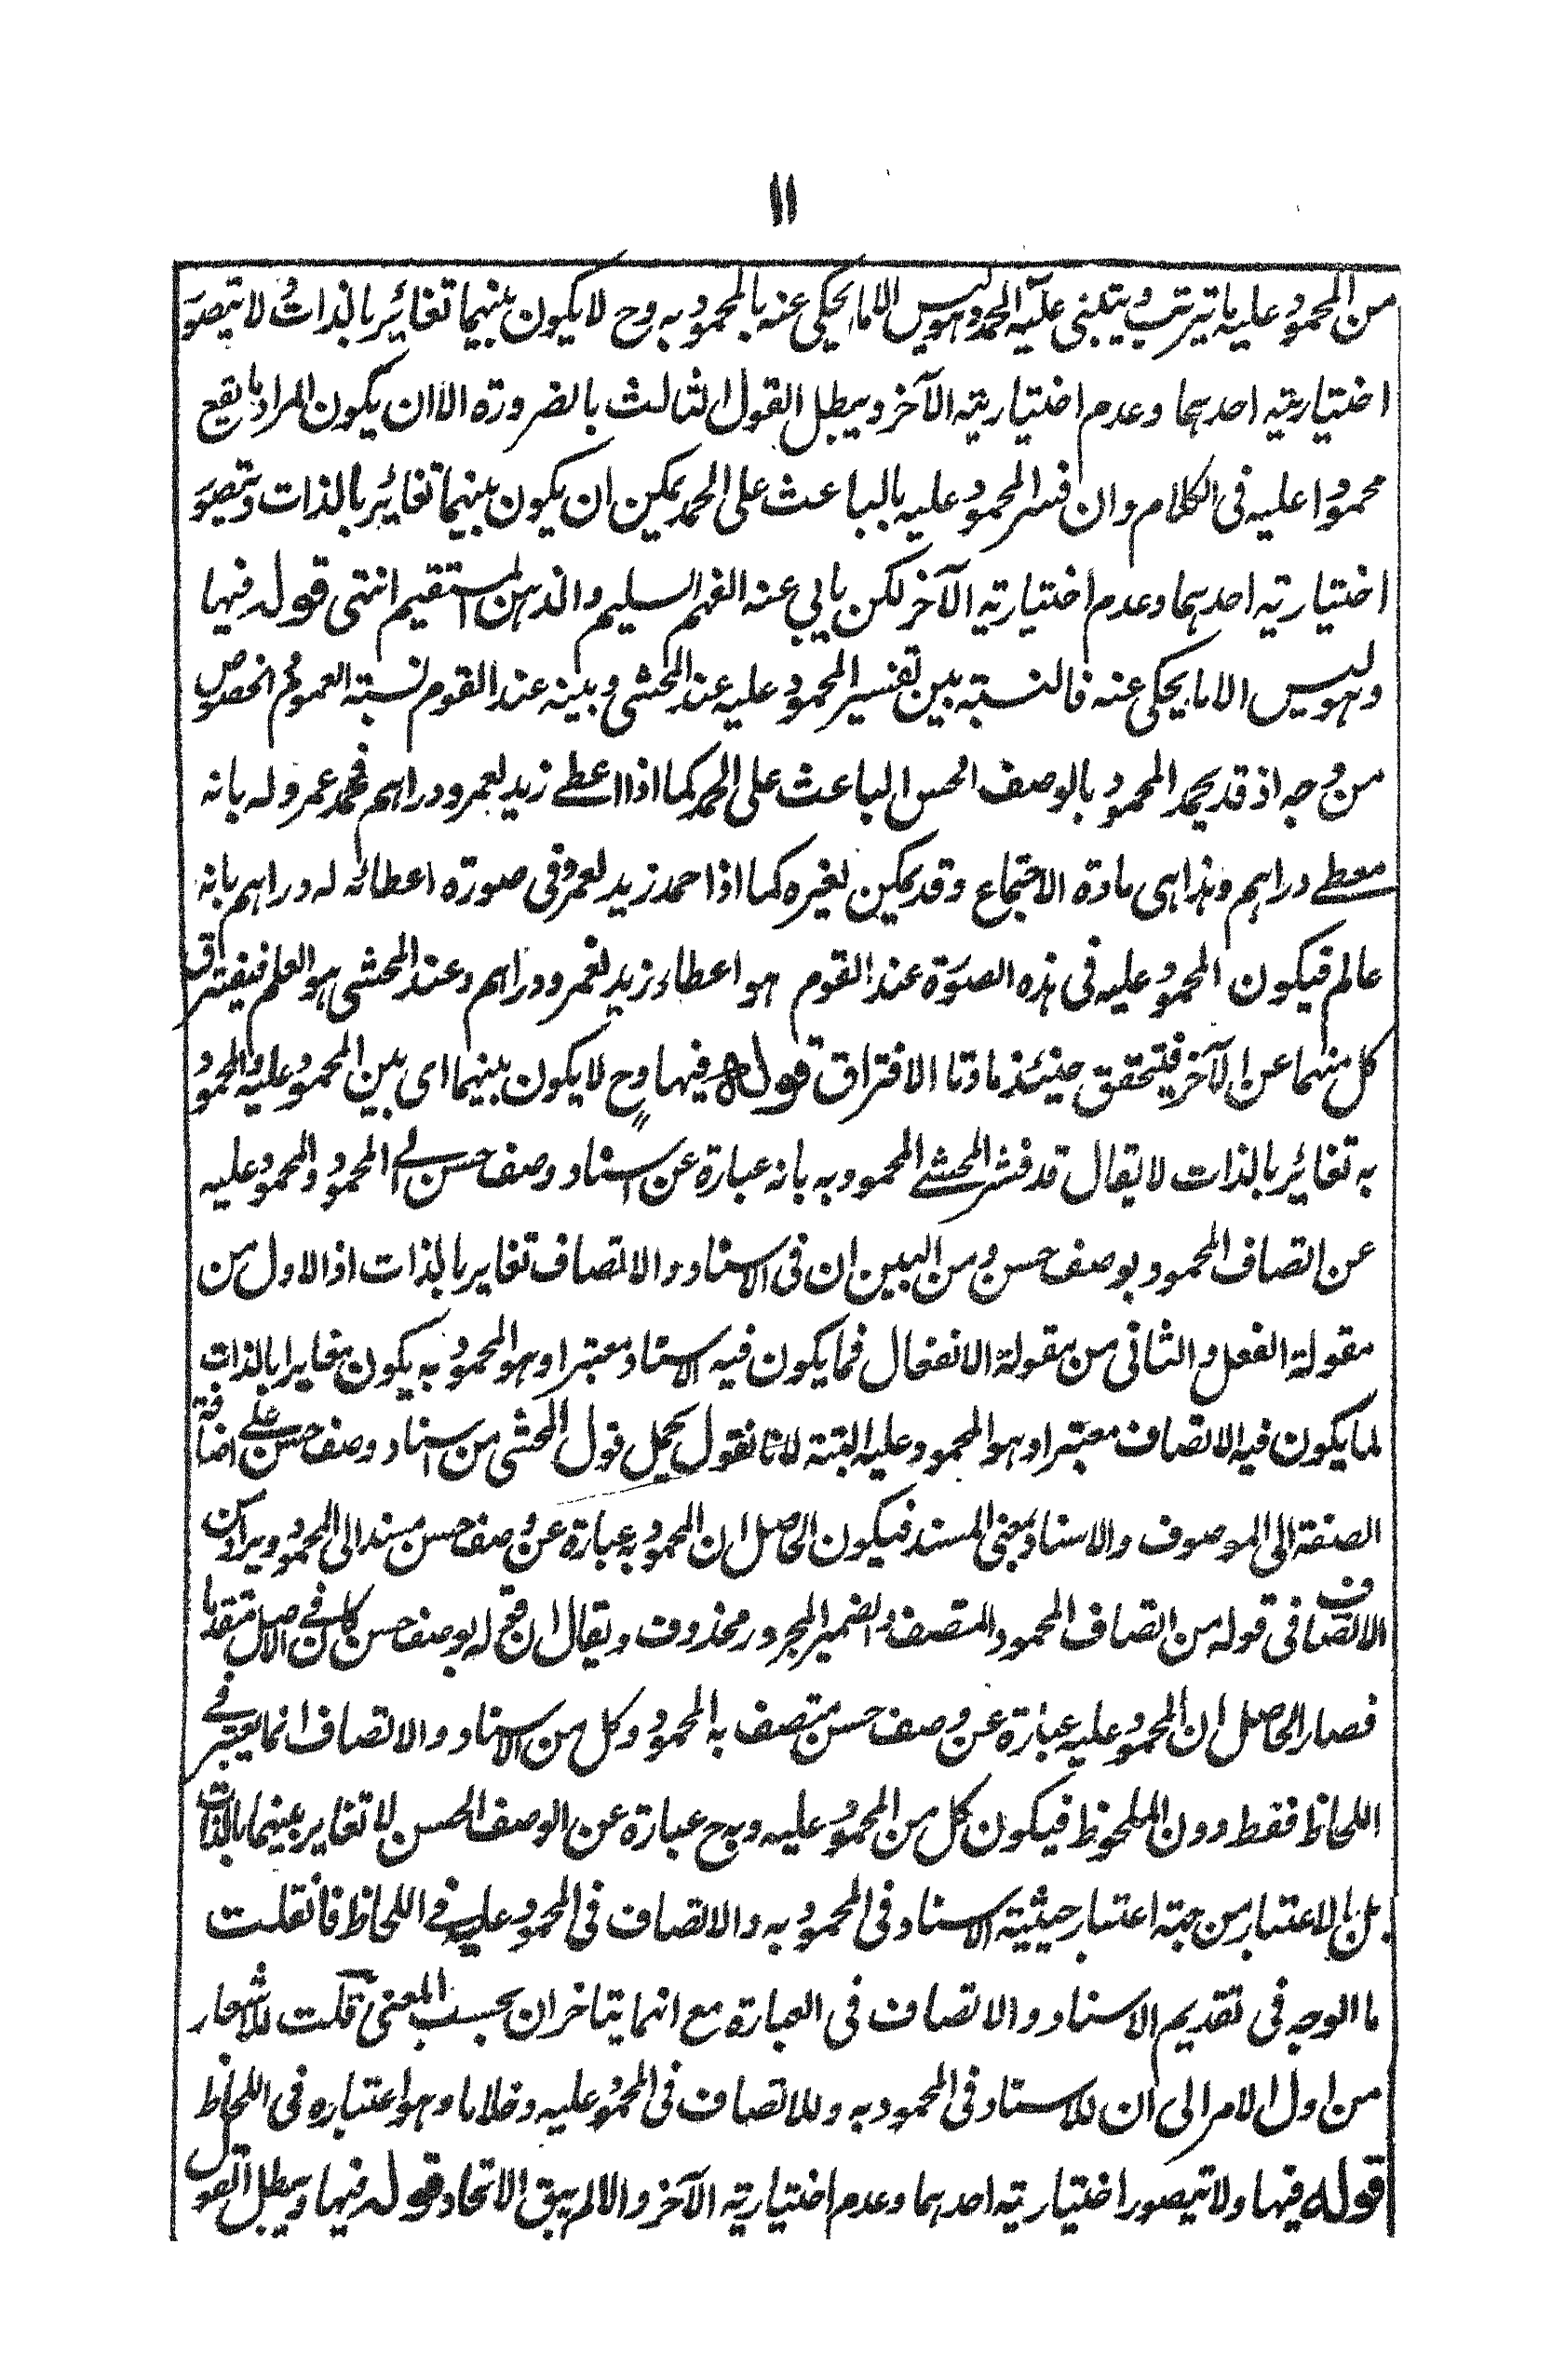 ١١
من المحمود عليه ما يترتب ويتبنى عليه الحمد وهو ليس الا ما يحكى عنه بالمحمود به وح لا يكون بينهما تغائير بالذات ولا يتصور
اختياريته احدهما وعدم اختياريته الآخر ويبطل القول الثالث بالضرورة الا ان يكون المراد ما يقع
محمودا عليه فى الكلام وان فسر المحمود عليه بالباعث على الحمد يمكن ان يكون بينهما تغائير بالذات ويتصور
اختياريته احدهما وعدم اختياريته الآخر لكن يابي عنه الفهم السليم والذهن المستقيم انتهى قوله فيها
وهو ليس الا ما يحكى عنه فالنسبة بين تفسير المحمود عليه عند المحشى وبينه عند القوم نسبة العموم والخصوص
من وجه اذ قد يحمد المحمود بالوصف الحسن الباعث على الحمد كما اذا اعطے زيد لعمرو دراهم فحمد عمرو له بانه
معطے دراهم وهذا هى مادة الاجتماع وقد يمكن لغيره كما اذا حمد زيد لعمرو فى صورة اعطائه له دراهم بانه
عالم فيكون المحمود عليه فى هذه الصورة عند القوم هو اعطاء زيد لعمرو دراهم وعند المحشى هو العلم فيفترق
كل منهما عن الآخر فيتحقق حينئذ مادتا الافتراق قوله فيها وح لا يكون بينهما اى بين المحمود عليه والمحمود
به تغائير بالذات لا يقال قد فسر المحشے المحمود به بانه عبارة عن اسناد وصف حسن الے المحمود والمحمود عليه
عن اتصاف المحمود بوصف حسن ومن البين ان فى الاسناد والاتصاف تغاير بالذات اذ الاول من
مقولة الفعل والثانى من مقولة الانفعال فما يكون فيه الاسناد معتبرا وهو المحمود به يكون مغايرا بالذات
لما يكون فيه الاتصاف معتبرا وهو المحمود عليه البتة لانا نقول يحمل قول المحشى من اسناد وصف حسن علے اضافة
الصفة الى الموصوف والاسناد بمعنى المسند فيكون الحاصل ان المحمود به عبارة عن وصف حسن مسند الى المحمود ويراد من
الاتصاف فى قوله من اتصاف المحمود المتصف والضمير المجرور محذوف ويقال ان قوله بوصف حسن كان فے الاصل مقدما
فصار الحاصل ان المحمود عليه عبارة عن وصف حسن متصف به المحمود وكل من الاسناد والاتصاف انما يعتبر فے
اللحاظ فقط دون الملحوظ فيكون كل من المحمود عليه وبه ح عبارة عن الوصف الحسن لا تغاير بينهما بالذات
بل بالاعتبار من جهة اعتبار حيثية الاسناد فى المحمود به والاتصاف فى المحمود عليه فے اللحاظ فان قلت
ما الوجه فى تقديم الاسناد والاتصاف فى العبارة مع انهما يتاخران بحسب المعنى قلت للاشعار
من اول الامر الى ان للاسناد فى المحمود به وللاتصاف فى المحمود عليه دخلا ما وهو اعتباره فى اللحاظ
قوله فيها ولا يتصور اختياريته احدهما وعدم اختياريته الآخر والا لم يبق الاتحاد قوله فيها ويبطل القول